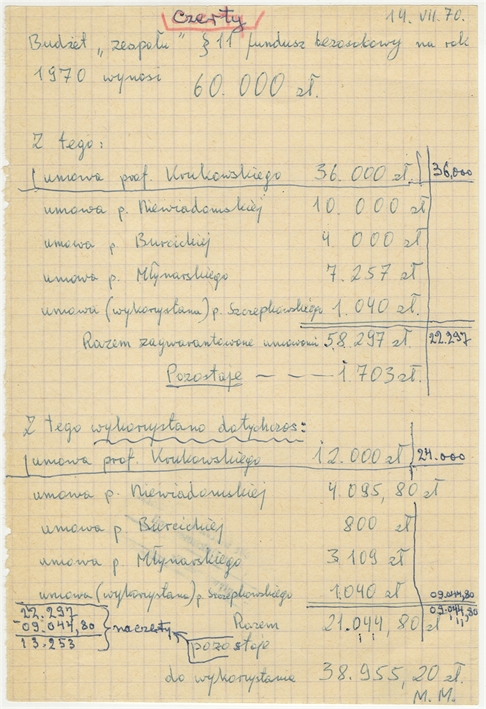 czerty
14. VII. 70.
Budżet „zespołu" § 11 fundusz bezosobowy na rok
1970 wynosi 60.000 zł.
Z tego:
umowa prof. Krukowskiego 36.000 zł. 36,000
umowa p. Niewiadomskiej 10.000 zł
umowa p. Burcickiej 4.000 zł
umowa p. Młynarskiego 7.257 zł
umowa (wykorzystana) p. Szczepkowskiego 1.040 zł.
Razem zagwarantowane umowami 58.297 zł. 22.297
Pozostaje — — — 1.703 zł.
Z tego wykorzystano dotychczas:
umowa prof. Krukowskiego 12.000 zł 24.000
umowa p. Niewiadomskiej 4.095,80 zł
umowa p. 800 zł
umowa p. Młynarskiego 3.109 zł
umowa (wykorzystana) p. Szczepkowskiego 1.040 zł 09.044,80
22.297 Razem 21.044,80 zł 09.044,80
09.044,80 na czerty pozostaje
13.253
do wykorzystania 38.955,20 zł.
M. M.